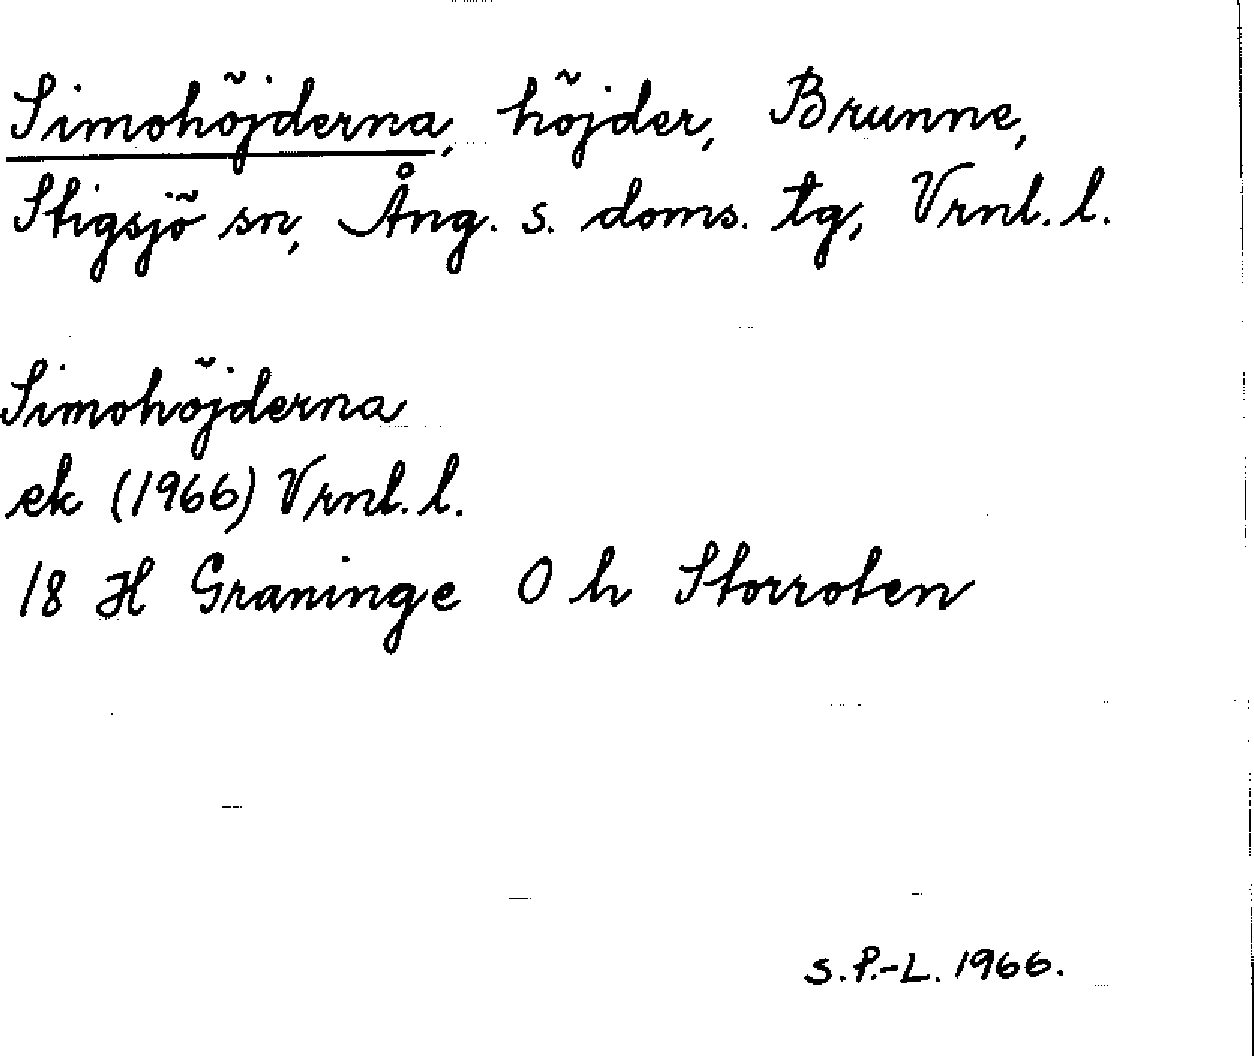 Simohöjderna, höjder, Brunne,
Stigsjö sn, Ång. s. doms. tg, Vrnl. l.
Simohöjderna
ek (1966) Vrnl. l.
18 H Graninge 0 h Storroten
S.P.-L. 1966.